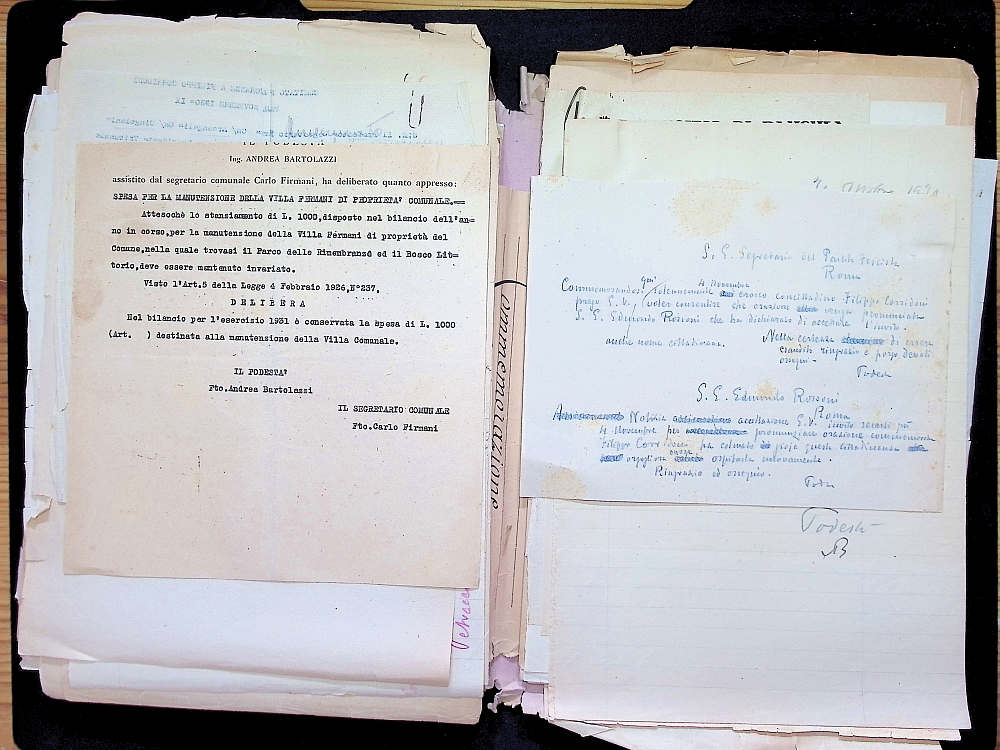 COMITATO ONORANZE A FILIPPO CORRIDONI
IL PODESTA'
Ing. ANDREA BARTOLAZZI
assistito dal segretario comunale Carlo Firmani, ha deliberato quanto appresso:
SPESA PER LA MANUTENZIONE DELLA VILLA FERMANI DI PROPRIETA' COMUNALE.==
Attesochè lo stanziamento di L. 1000,disposto nel bilancio dell'an=
no in corso,per la manutenzione della Villa Fermani di proprietà del
Comune,nella quale trovasi il Parco delle Rimembranze ed il Bosco Lit=
torio,deve essere mantenuto invariato.
Visto l'Art.5 della Legge 4 Febbraio 1926,N°237,
D E L I B E R A
Nel bilancio per l'esercizio 1931 è conservata la spesa di L. 1000
(Art. ) destinata alla manutenzione della Villa Comunale.
IL PODESTA'
Fto.Andrea Bartolazzi
IL SEGRETARIO COMUNALE
Fto.Carlo Firmani
commemorazione
S. E. Segretario del Partito Fascista
Roma
4 Novembre
Commemorandosi qui solennemente eroico concittadino Filippo Corridoni
prego E. V. voler consentire che orazione venga pronunciata
S. E. Edmondo Rossoni che ha dichiarato di accettare l'invito.
Nella certezza di essere
anche nome cittadinanza.
esaudito ringrazio e porgo devoti
ossequi -
Podestà
S. E. Edmondo Rossoni
Roma
Notizia accettazione E. V. invito recarsi qui
4 Novembre per pronunziare orazione commemorativa
Filippo Corridoni ha colmato gioja questa cittadinanza
orgogliosa ospitarla nuovamente.
Ringrazio ed ossequio.
Podestà
Podestà
AB